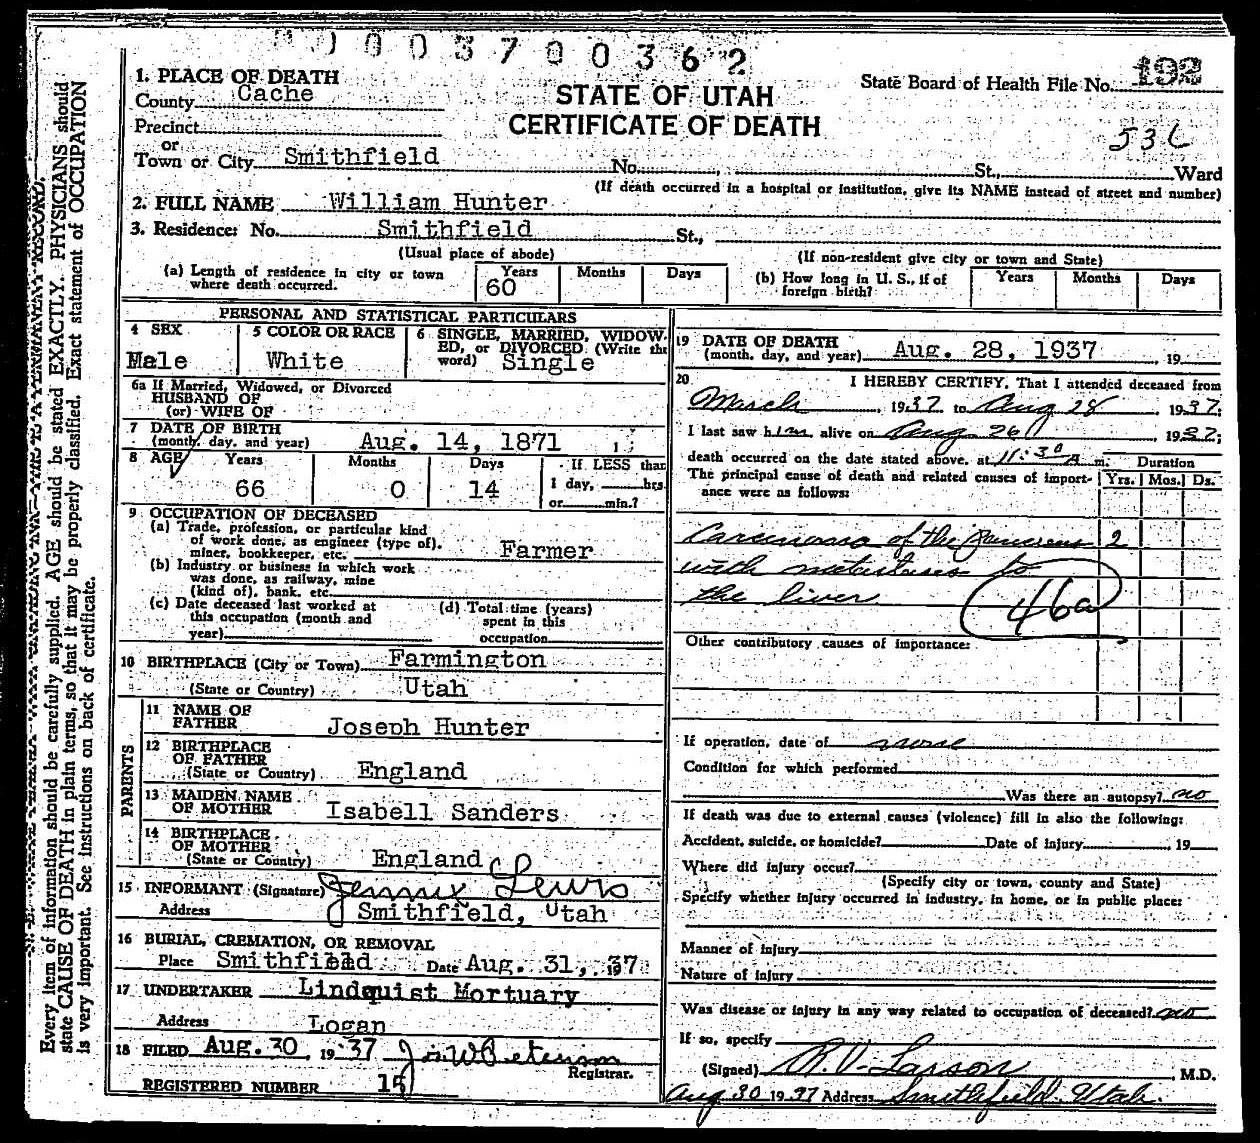 0003700362
1. PLACE OF DEATH
County Cache
STATE OF UTAH
CERTIFICATE OF DEATH
State Board of Health File No. 192
Precinct
or
Town or City Smithfield No. , St., Ward
536
(If death occurred in a hospital or institution, give its NAME instead of street and number)
2. FULL NAME William Hunter
3. Residence: No. Smithfield St.,
(Usual place of abode) (If non-resident give city or town and State)
(a) Length of residence in city or town where death occurred. Years 60 Months Days
(b) How long in U. S., if of foreign birth? Years Months Days
PERSONAL AND STATISTICAL PARTICULARS
4 SEX Male
5 COLOR OR RACE White
6 SINGLE, MARRIED, WIDOWED, or DIVORCED (Write the word) Single
6a If Married, Widowed, or Divorced
HUSBAND OF
(or) WIFE OF
7 DATE OF BIRTH
(month, day, and year) Aug. 14, 1871
8 AGE Years Months Days If LESS than
66 0 14 1 day, hrs.
or min.?
9 OCCUPATION OF DECEASED
(a) Trade, profession, or particular kind
of work done, as engineer (type of),
miner, bookkeeper, etc. Farmer
(b) Industry or business in which work
was done, as railway, mine
(kind of), bank, etc.
(c) Date deceased last worked at
this occupation (month and
year)
(d) Total time (years)
spent in this
occupation
10 BIRTHPLACE (City or Town) Farmington
(State or Country) Utah
PARENTS
11 NAME OF
FATHER Joseph Hunter
12 BIRTHPLACE
OF FATHER
(State or Country) England
13 MAIDEN NAME
OF MOTHER Isabell Sanders
14 BIRTHPLACE
OF MOTHER
(State or Country) England
15 INFORMANT (Signature) Jennie Lewis
Address Smithfield, Utah
16 BURIAL, CREMATION, OR REMOVAL
Place Smithfield Date Aug. 31, 1937
17 UNDERTAKER Lindquist Mortuary
Address Logan
18 FILED Aug. 30, 1937 Jos W Peterson
Registrar.
REGISTERED NUMBER 15
19 DATE OF DEATH
(month, day, and year) Aug. 28, 1937 , 19
20 I HEREBY CERTIFY, That I attended deceased from
March , 1937 to Aug 28 , 1937;
I last saw him alive on Aug. 26 1937;
death occurred on the date stated above, at 11:30 A m. Duration
The principal cause of death and related causes of importance were as follows: Yrs. Mos. Ds.
Carcinoma of the Pancreas 2
with metastases to
the liver 46a
Other contributory causes of importance:
If operation, date of none
Condition for which performed
Was there an autopsy? no
If death was due to external causes (violence) fill in also the following:
Accident, suicide, or homicide? Date of injury , 19
Where did injury occur?
(Specify city or town, county and State)
Specify whether injury occurred in industry, in home, or in public place:
Manner of injury
Nature of injury
Was disease or injury in any way related to occupation of deceased? no
If so, specify
(Signed) R. V. Larson , M.D.
Aug 30 1937 Address Smithfield, Utah.
Every item of information should be carefully supplied. AGE should be stated EXACTLY. PHYSICIANS should
state CAUSE OF DEATH in plain terms, so that it may be properly classified. Exact statement of OCCUPATION
is very important. See instructions on back of certificate.